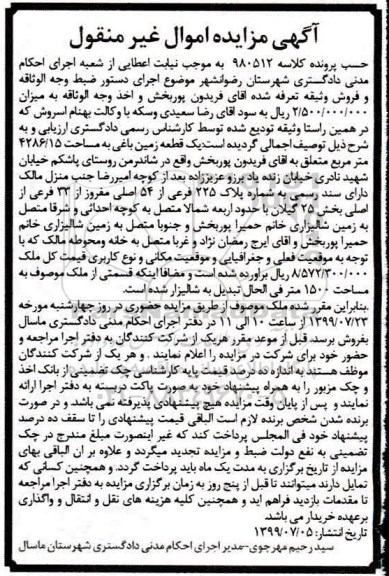 آگهی مزایده اموال غیر منقول
حسب پرونده کلاسه ۹۸۰۵۱۲ به موجب نیابت اعطایی از شعبه اجرای احکام
مدنی دادگستری شهرستان رضوانشهر موضوع اجرای دستور ضبط وجه الوثاقه
و فروش وثیقه تعرفه شده آقای فریدون پوربخش و اخذ وجه الوثاقه به میزان
۲/۵۰۰/۰۰۰/۰۰۰ ریال به سود آقای رضا سعیدی وسکه با وکالت بهنام اسروش که
در همین راستا وثیقه تودیع شده توسط کارشناس رسمی دادگستری ارزیابی و به
شرح ذیل توصیف اجمالی گردیده است:یک قطعه زمین باغی به مساحت ۴۲۸۶/۱۵
متر مربع متعلق به آقای فریدون پوربخش واقع در شاندرمن روستای پاشکم خیابان
شهید نادری خیابان زنده یاد پرزو عزیززاده بعد از کوچه امیررضا جنب منزل مالک
دارای سند رسمی به شماره پلاک ۲۲۵ فرعی از ۵۴ اصلی مفروز از ۳۳ فرعی از
اصلی بخش ۲۵ گیلان با حدود اربعه شمالا متصل به کوچه احداثی و شرقا متصل
به زمین شالیزاری خانم حمیرا پوربخش و جنوبا متصل به زمین شالیزاری خانم
حمیرا پوربخش و آقای ایرج رمضان نژاد و غربا متصل به خانه ومحوطه مالک که با
توجه به موقعیت فعلی و جغرافیایی و موقعیت مکانی و نوع کاربری قیمت کل ملک
۸/۵۷۲/۳۰۰/۰۰۰ ریال برآورده شده است و مضافا اینکه قسمتی از ملک موصوف به
مساحت ۱۵۰۰ متر فی الحال تبدیل به شالیزار شده است.
.بنابراین مقرر شده ملک موصوف از طریق مزایده حضوری در روز چهارشنبه مورخه
۱۳۹۹/۰۷/۲۳ از ساعت ۱۰ الی ۱۱ در دفتر اجرای احکام مدنی دادگستری ماسال
بفروش برسد. قبل از موعد مقرر هریک از شرکت کنندگان به دفتر اجرا مراجعه و
حضور خود برای شرکت در مزایده را اعلام نمایند . و هر یک از شرکت کنندگان
موظف هستند به اندازه ده درصد قیمت پایه کارشناسی چک تضمینی از بانک اخذ
و چک مزبور را به همراه پیشنهاد خود به صورت پاکت دربسته به دفتر اجرا ارائه
نمایند و پس از پایان وقت مزایده هیچ پیشنهادی پذیرفته نمی باشد و در صورت
برنده شدن شخص برنده لازم است الباقی قیمت پیشنهادی را تا سقف ده درصد
پیشنهاد خود فی المجلس پرداخت کند که غیر اینصورت مبلغ مندرج در چک
تضمینی به نفع دولت ضبط و مزایده تجدید میگردد و علاوه بر ان الباقی بهای
مزایده از تاریخ برگزاری به مدت یک ماه باید پرداخت گردد. و همچنین کسانی که
تمایل دارند میتوانند تا قبل از پنج روز به زمان برگزاری مزایده به دفتر اجرا مراجعه
تا مقدمات بازدید فراهم آید و همچنین کلیه هزینه های نقل و انتقال و واگذاری
برعهده خریدار می باشد.
تاریخ انتشار: ۱۳۹۹/۰۷/۰۵
سید رحیم مهرجوی-مدیر اجرای احکام مدنی دادگستری شهرستان ماسال